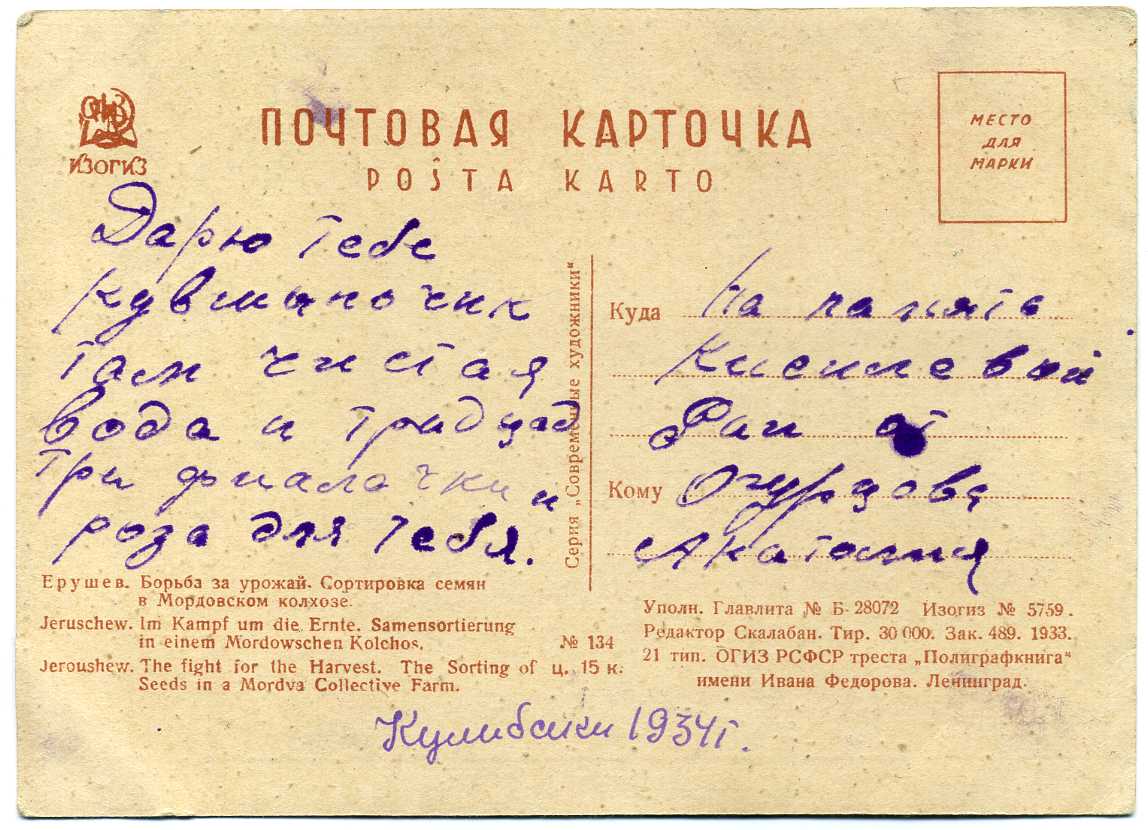 ОГИЗ
ИЗОГИЗ
ПОЧТОВАЯ КАРТОЧКА
POŜTA KARTO
МЕСТО
ДЛЯ
МАРКИ
Дарю тебе
кувшыночик
там чистая
вода и тридцад
три фиалочки и
роза для тебя.
Серия „Современные художники“
Куда На память
Кисилевой
Раи от
Кому Огурцова
Анатолия
Ерушев. Борьба за урожай. Сортировка семян
в Мордовском колхозе.
Jeruschew. Im Kampf um die Ernte. Samensortierung
in einem Mordowschen Kolchos.
Jeroushew. The fight for the Harvest. The Sorting of
Seeds in a Mordva Collective Farm.
№ 134
ц. 15 к.
Уполн. Главлита № Б-28072 Изогиз № 5759.
Редактор Скалабан. Тир. 30 000. Зак. 489. 1933.
21 тип. ОГИЗ РСФСР треста „Полиграфкнига“
имени Ивана Федорова. Ленинград.
Кулибаки 1934г.